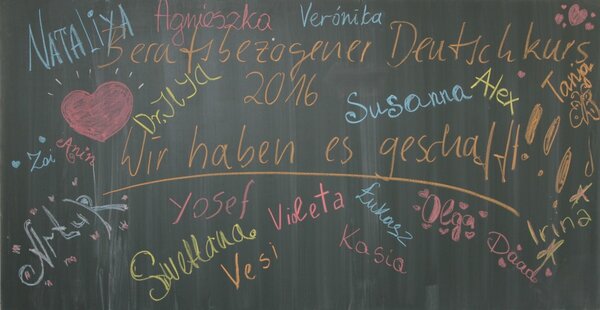 NATALIYA Agnieszka Verónika
Berufsbezogener Deutschkurs
2016
Dr. Ilya Susanna Alex Tanja
Zai Anin
Wir haben es geschafft!!!
Yosef Violeta Łukasz Olga Irina
Swetlana Vesi Kasia Daad